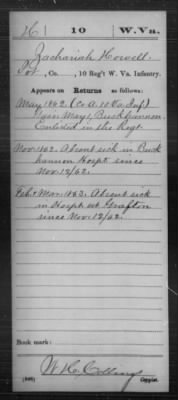 H | 10 | W.Va.
Zachariah Howell
Pvt., Co. , 10 Reg't W. Va. Infantry.
Appears on Returns as follows:
May 1862. (Co A. 10 Va Inf)
Gain May 1, Buckhannon
Enlisted in the Regt.
Nov. 1862. Absent sick in Buck
hannon Hospt since
Nov. 12/62.
Feb. & Mar. 1863. Absent sick
in Hospt at Grafton
since Nov. 12/62.
Book mark:
W. H.
Copyist.